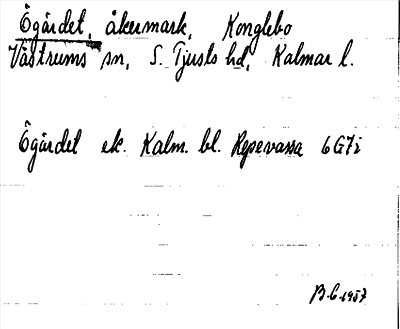 Ögärdet, åkermark, Konglebo
Västrums sn, S. Tjusts hd, Kalmar l.
Ögärdet ek. Kalm. bl. Repevassa 6G7i
B.G. 1957